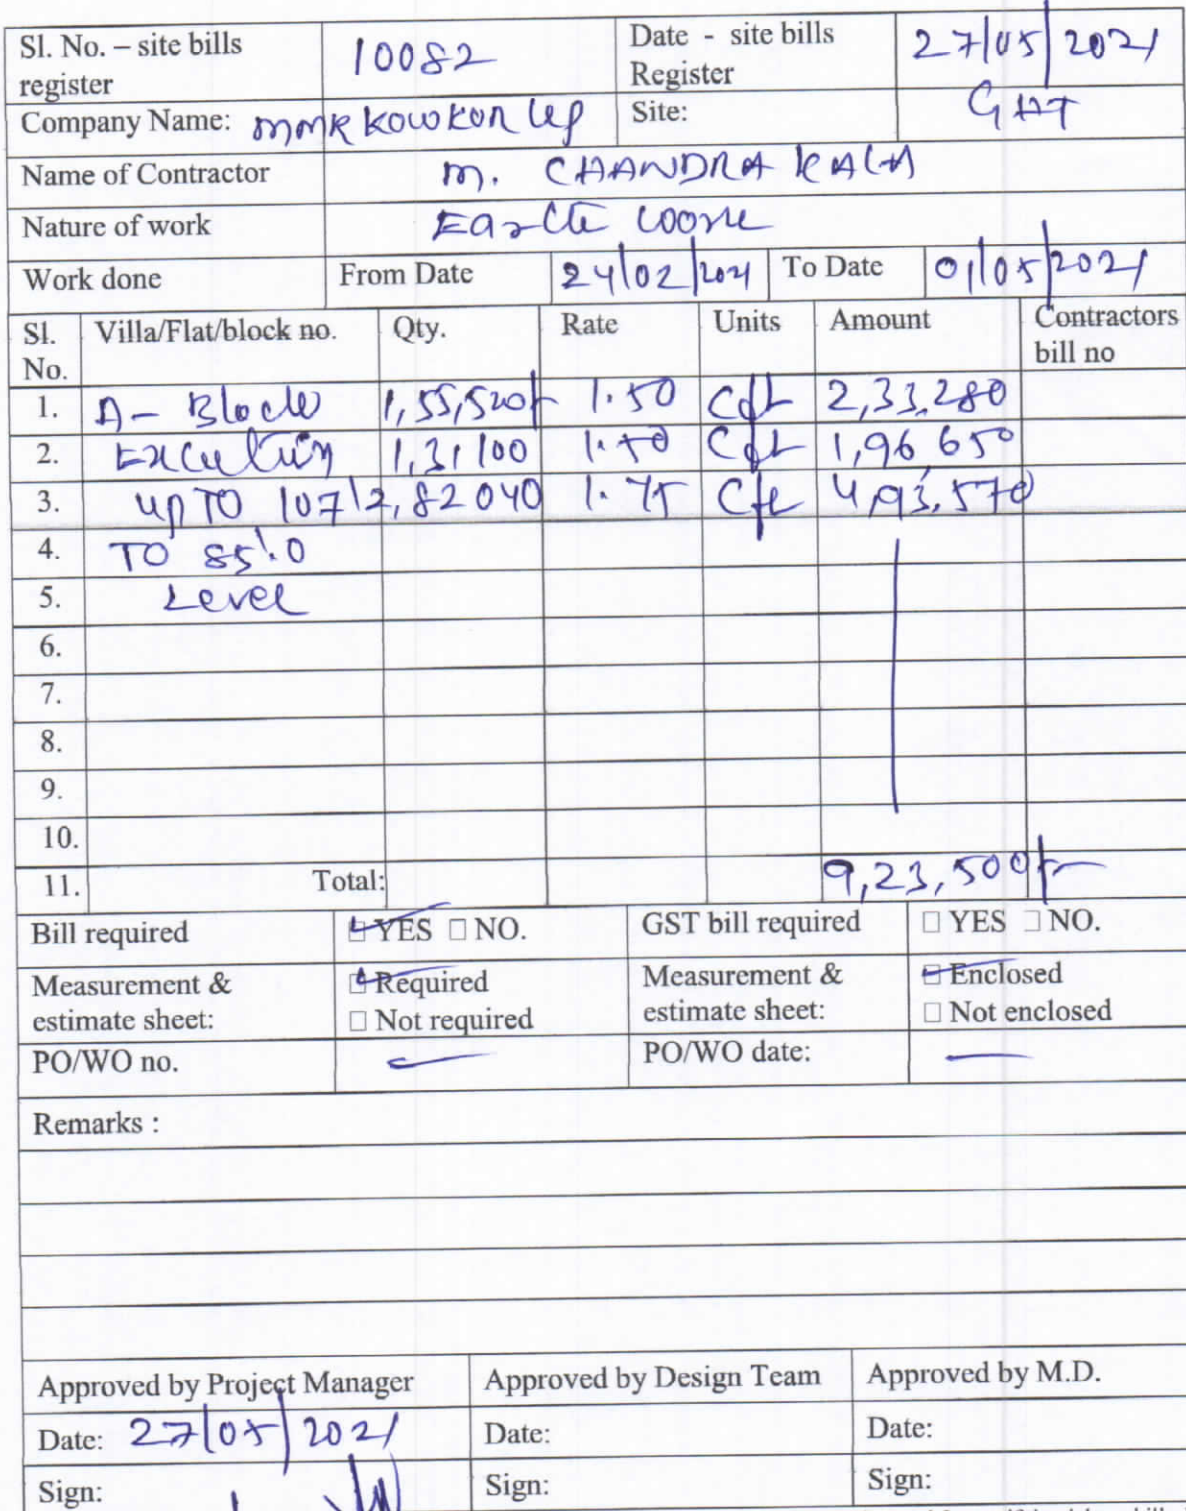 Sl. No. – site bills register 10082 Date - site bills Register 27/05/2021
Company Name: MMR KOWKUR LLP Site: GHT
Name of Contractor M. CHANDRA KALA
Nature of work Earth work
Work done From Date 24/02/2021 To Date 01/05/2021
Sl. No. Villa/Flat/block no. Qty. Rate Units Amount Contractors bill no
1. A - Block 1,55,520/- 1.50 Cft 2,33,280
2. 1,31,100 1.50 Cft 1,96,650
3. up TO 107' 2,82,040 1.75 Cft 4,93,570
4. TO 85'.0
5. Level
6.
7.
8.
9.
10.
11. Total: 9,23,500/-
Bill required ☑ YES □ NO. GST bill required □ YES □ NO.
Measurement & estimate sheet: ☑ Required □ Not required Measurement & estimate sheet: ☑ Enclosed □ Not enclosed
PO/WO no. — PO/WO date: —
Remarks :
Approved by Project Manager Approved by Design Team Approved by M.D.
Date: 27/05/2021 Date: Date:
Sign: Sign: Sign: